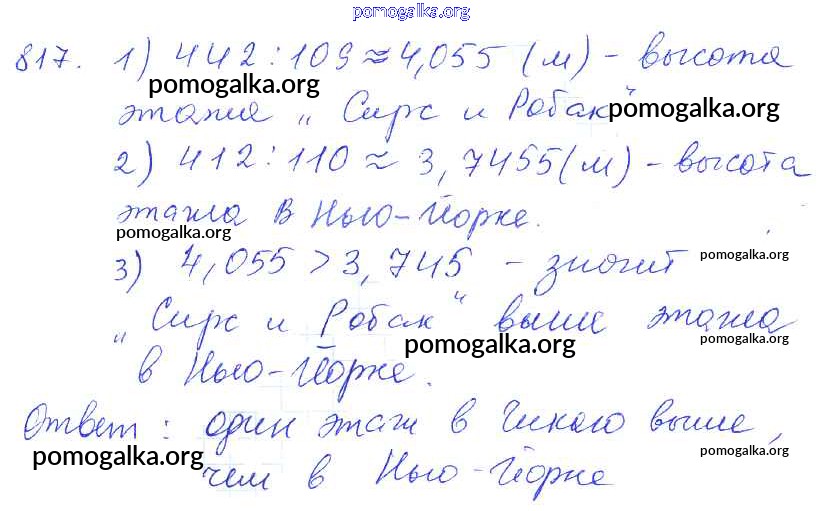 pomogalka.org
817. 1) 442 : 109 ≈ 4,055 (м) – высота
pomogalka.org
этажа „Сирс и Робак“ pomogalka.org
2) 412 : 110 ≈ 3,7455 (м) – высота
этажа в Нью-Йорке.
pomogalka.org
3) 4,055 > 3,745 – значит pomogalka.org
„Сирс и Робак“ выше этажа
pomogalka.org pomogalka.org
в Нью-Йорке.
Ответ: один этаж в Чикаго выше,
pomogalka.org чем в Нью-Йорке pomogalka.org